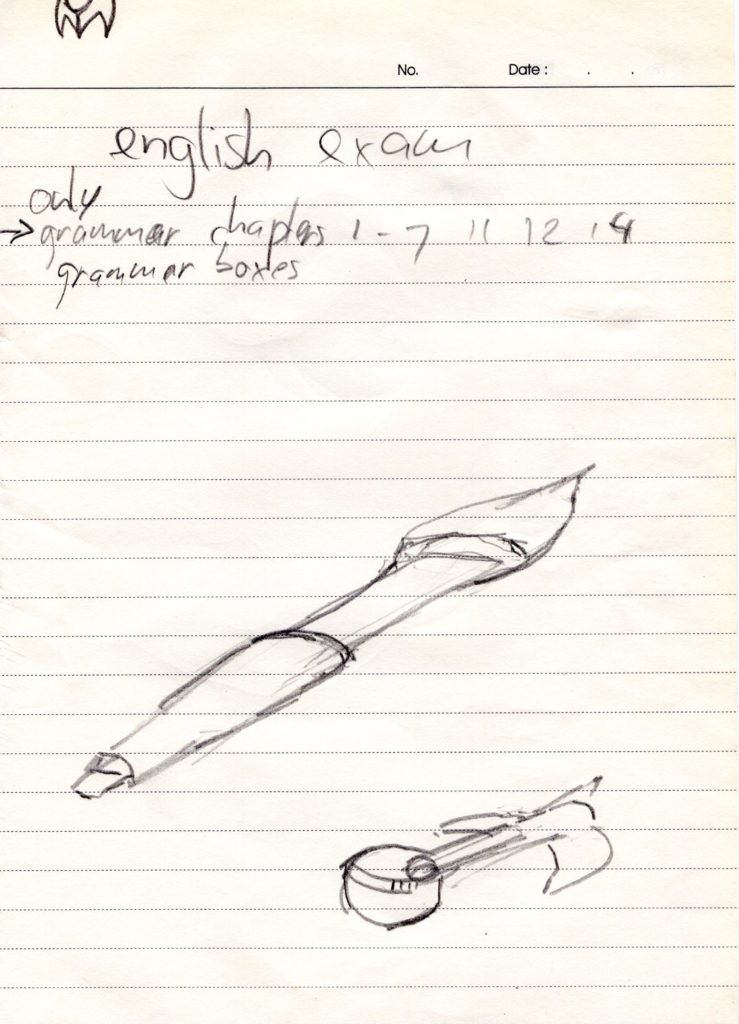 No. Date : . .
english exam
only
→ grammar chapters 1 - 7 11 12 14
grammar boxes